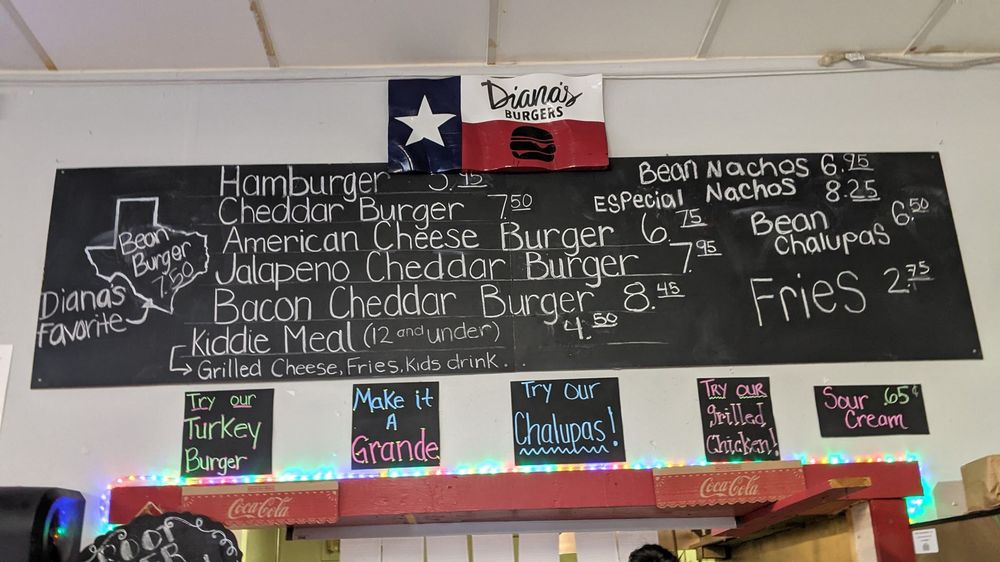 Diana's
BURGERS
Hamburger 5.45
Cheddar Burger 7.50
American Cheese Burger 6.75
Jalapeno Cheddar Burger 7.95
Bacon Cheddar Burger 8.45
Kiddie Meal (12 and under) 4.50
Grilled Cheese, Fries, Kids drink.
Bean
Burger
7.50
Diana's
Favorite
Bean Nachos 6.95
Especial Nachos 8.25
Bean
Chalupas 6.50
Fries 2.75
Try our
Turkey
Burger
Make it
A
Grande
Try our
Chalupas!
Try our
grilled
Chicken!
Sour .65¢
Cream
Coca-Cola
Coca-Cola